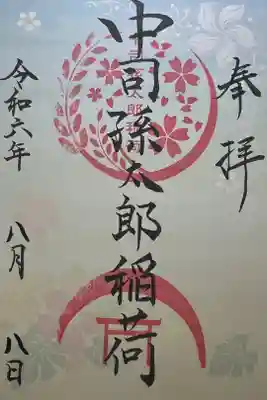 奉拝
中司孫太郎稲荷
令和六年 八月 八日